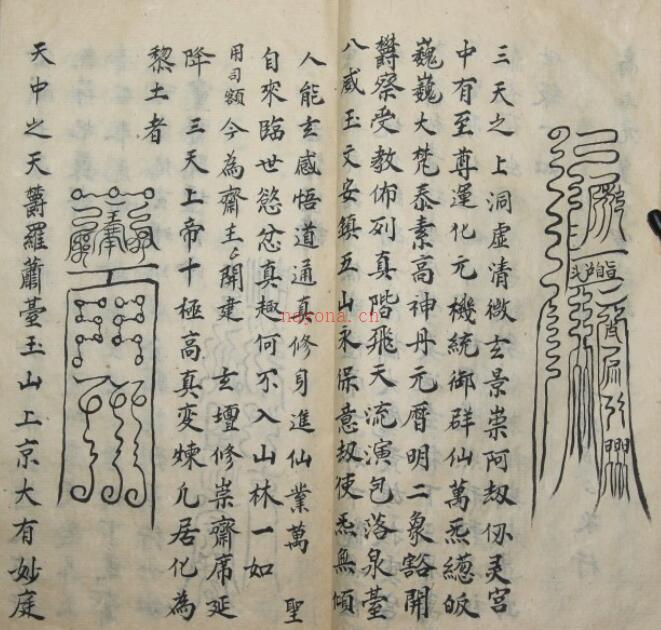 三天之上洞虛清微玄景崇阿劫仞灵宮
中有至尊運化元機統御群仙萬炁緫皈
巍巍大梵泰素高神丹元曆明二象豁開
欝察受教佈列真階飛天流演包落泉臺
八威玉文安鎮五山永保意劫使炁無傾
人能玄感悟道通真修身進仙業萬聖
自來臨世慾忿真趣何不入山林一如
用司額今為齋主開建玄壇修崇齋席延
降三天上帝十極高真变煉凢居化為
黎土者
天中之天欝羅蕭臺玉山上京大有妙庭
nayona.cn